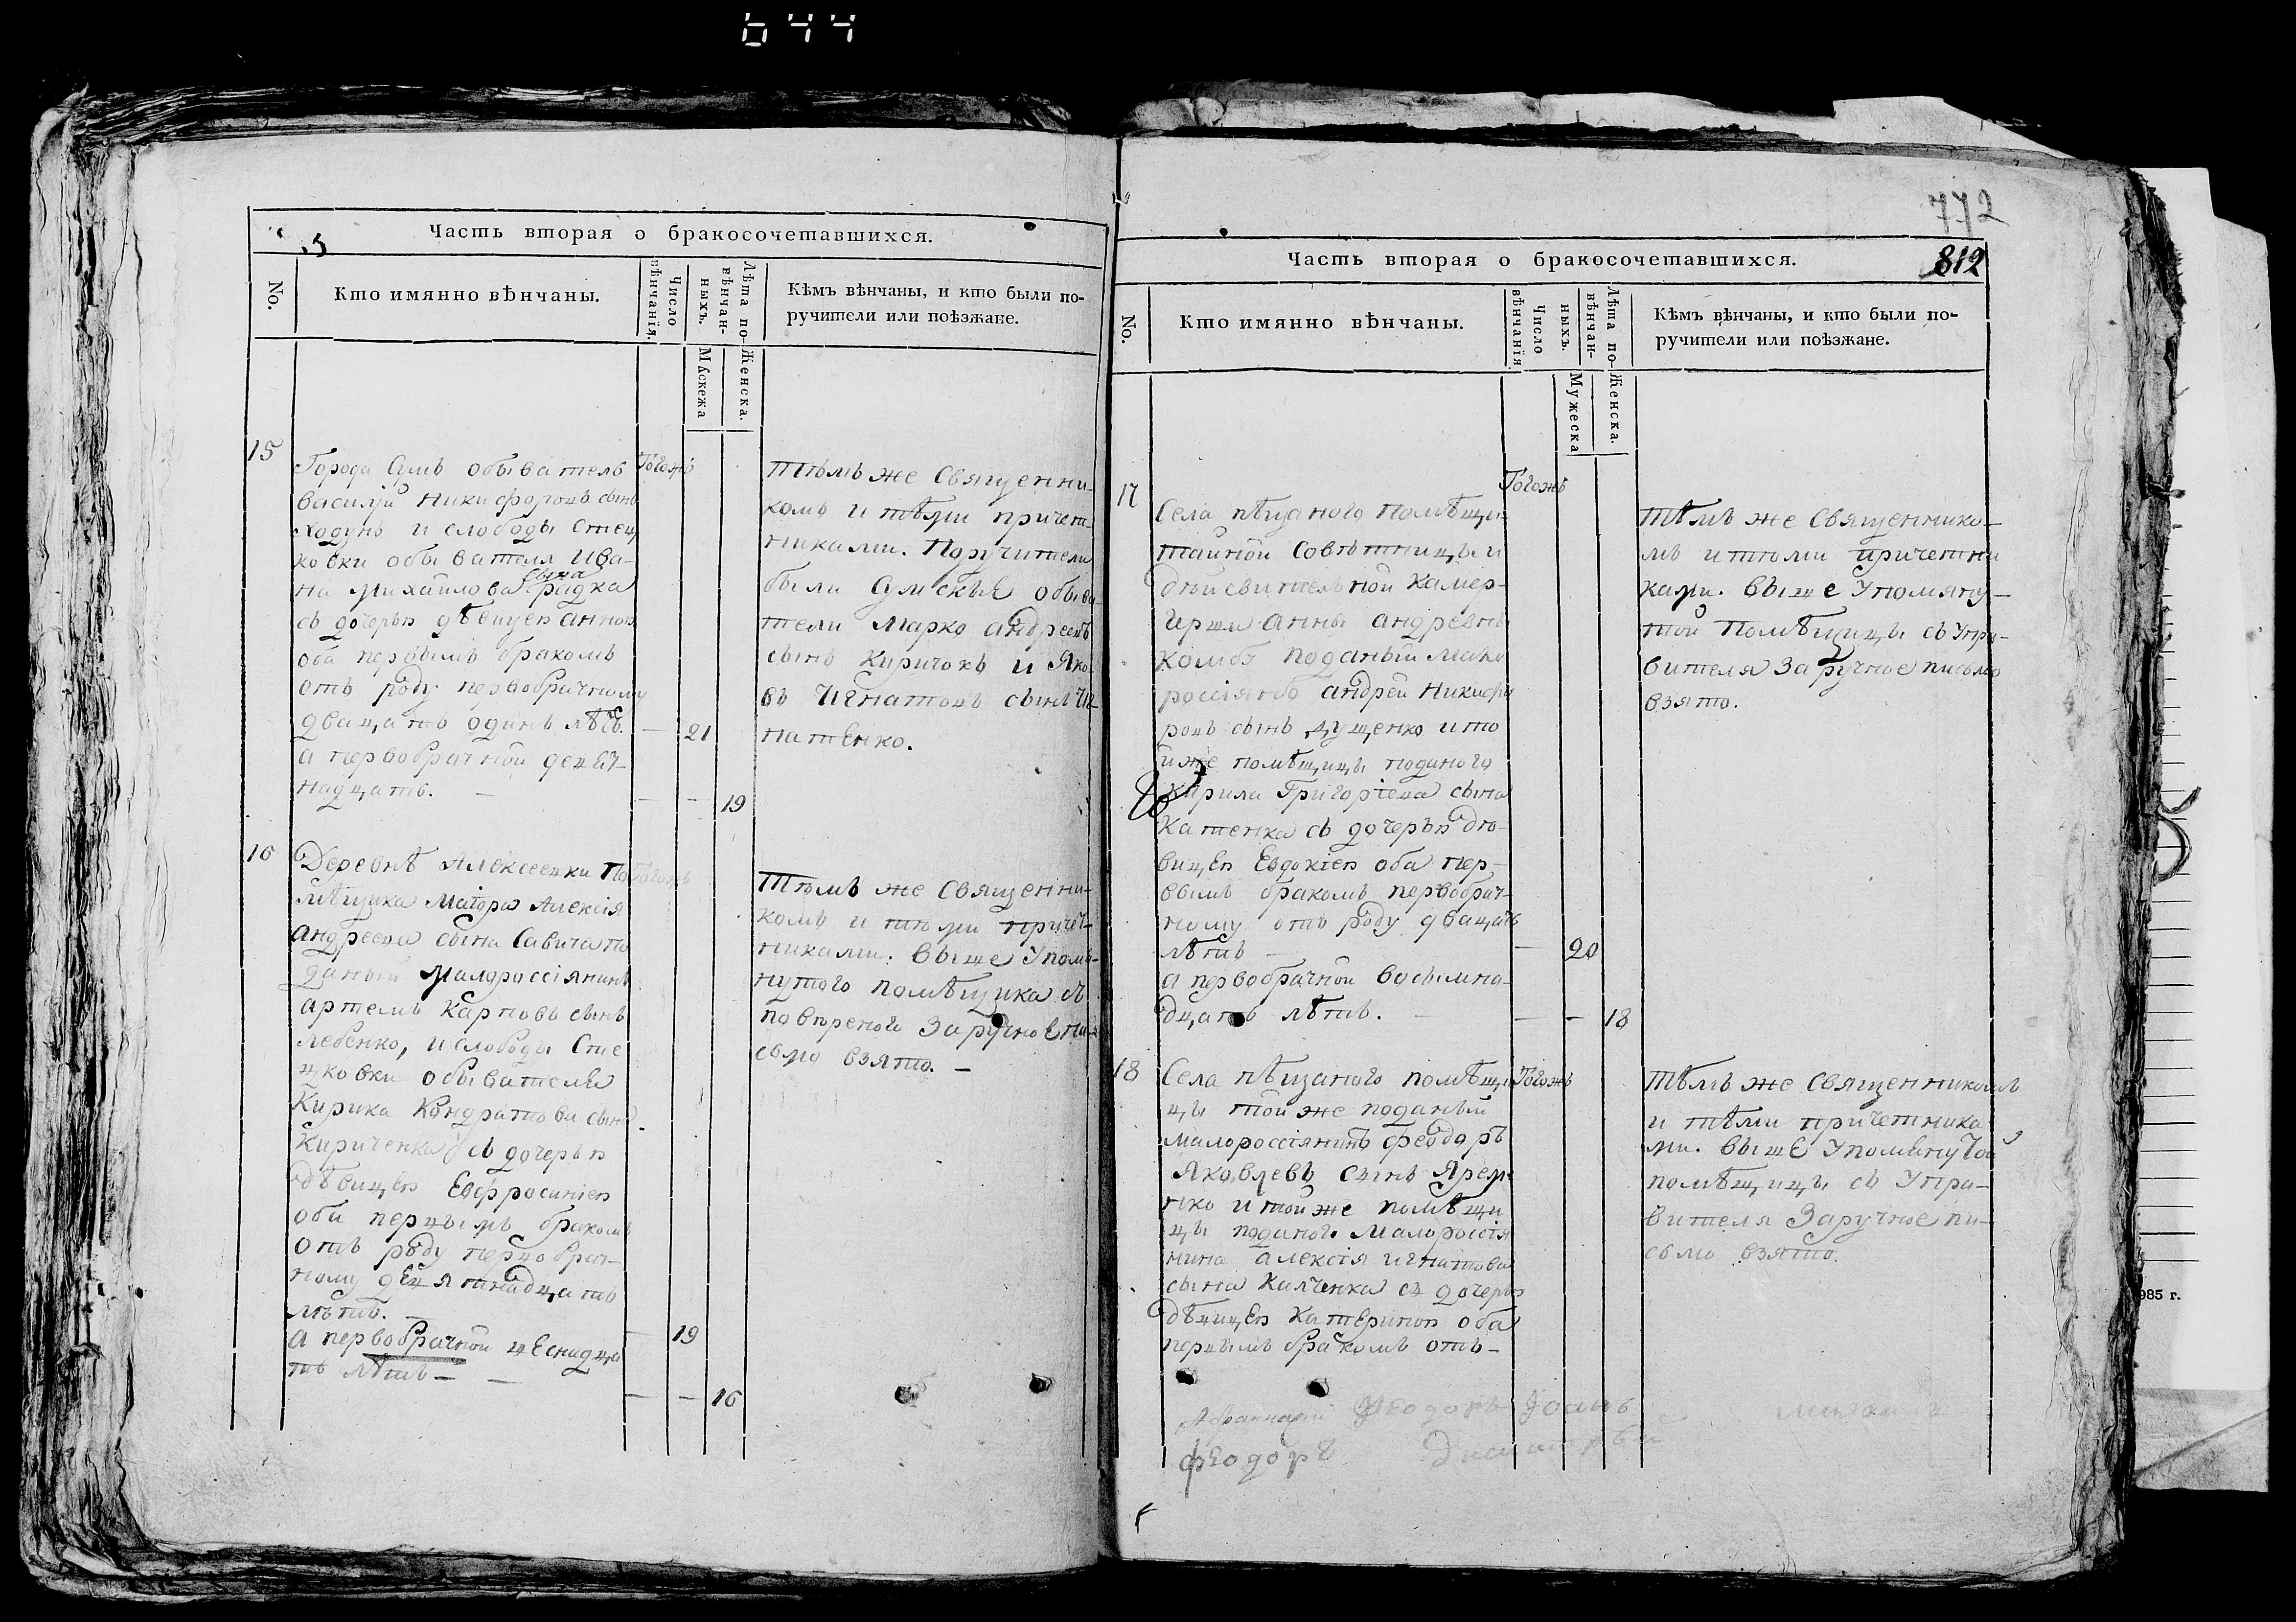 644
Часть вторая о бракосочетавшихся.
No.
Кто имянно вѣнчаны.
Число вѣнчанія.
Лѣта повѣнчанныхъ.
Мужеска
Женска.
Кѣмъ вѣнчаны, и кто были по-
ручители или поѣзжане.
15
Города Сумъ обыватель
василій Никифоровъ сынъ
Ходунъ и слободы Стец
ковки обывателя Ива-
на Михайлова сына радка
съ дочерью дѣвицею анною
оба первымъ бракомъ
отъ роду первобрачному
дватцать одинъ лѣтъ. — 21
а первобрачной девят-
надцать. — — — 19
Тогожъ
тѣмъ же Священни-
комъ и тѣми причет-
никами. Поручители
были Сумскія обыва
тели Марко андреевъ
сынъ Киричокъ и Яко-
въ Игнатовъ сынъ Иг-
натенко.
16
Деревнѣ Алексеевки По
мѣщика Маіора Алексія
андреева сына Савича по
даный Малороссіянинъ
артемъ Карповъ сынъ
лебенко, и слободы Сте
цковки обывателя
Кирика Кондратова сына
Кириченка съ дочерью
дѣвицею Евфросиніею
оба первымъ бракомъ
отъ роду первобрач-
ному девятнадцать
лѣтъ. — — 19
а первобрачной шеснадца
ть лѣтъ — — — — 16
Тогожъ
Тѣмъ же Священни-
комъ и тѣми причет-
никами. выше Упомя-
нутого помѣщика съ
повѣреного Заручное пи-
сьмо взято. —
772
812
Часть вторая о бракосочетавшихся.
No.
Кто имянно вѣнчаны.
Число вѣнчанія
Лѣта повѣнчанныхъ.
Мужеска
Женска.
Кѣмъ вѣнчаны, и кто были по-
ручители или поѣзжане.
17
Тогожъ
Села пѣщаного Помѣщи-
тайной Совѣтницы и
дѣйсвительной Камер-
герши анны андревны
поданый мало
россіянинъ андрей Никифо
ровъ сынъ Луценко и то
йже помѣщицы поданого
Кирила Григоріева сына
Катенка съ дочерью дѣ-
вицею Евдокіею оба пер-
вымъ бракомъ первобрач-
ному отъ роду дватцать
лѣтъ — — 20
а первобрачной восьмна-
дцать лѣтъ. — — — 18
тѣмъ же Священнико-
мъ и тѣми причетни
ками. выше Упомяну-
той Помѣщицы съ Упра-
вителя Заручное письмо
взято.
18
Села пѣщаного помѣщи
цы той же поданый
малороссіянинъ феодоръ
Яковлевъ сынъ Ярем
нко и той же помѣщи
цы поданого Малороссія
нина алексія игнатова
сына Калченка съ дочерью
дѣвицею Катериною оба
первымъ бракомъ отъ —
Тогожъ
тѣмъ же Священникомъ
и тѣми причетника
ми. выше Упомянутой
помѣщицы съ Упра-
вителя Заручное пи-
сьмо взято.
Феодоръ Іоанъ
феодоръ
985 г.